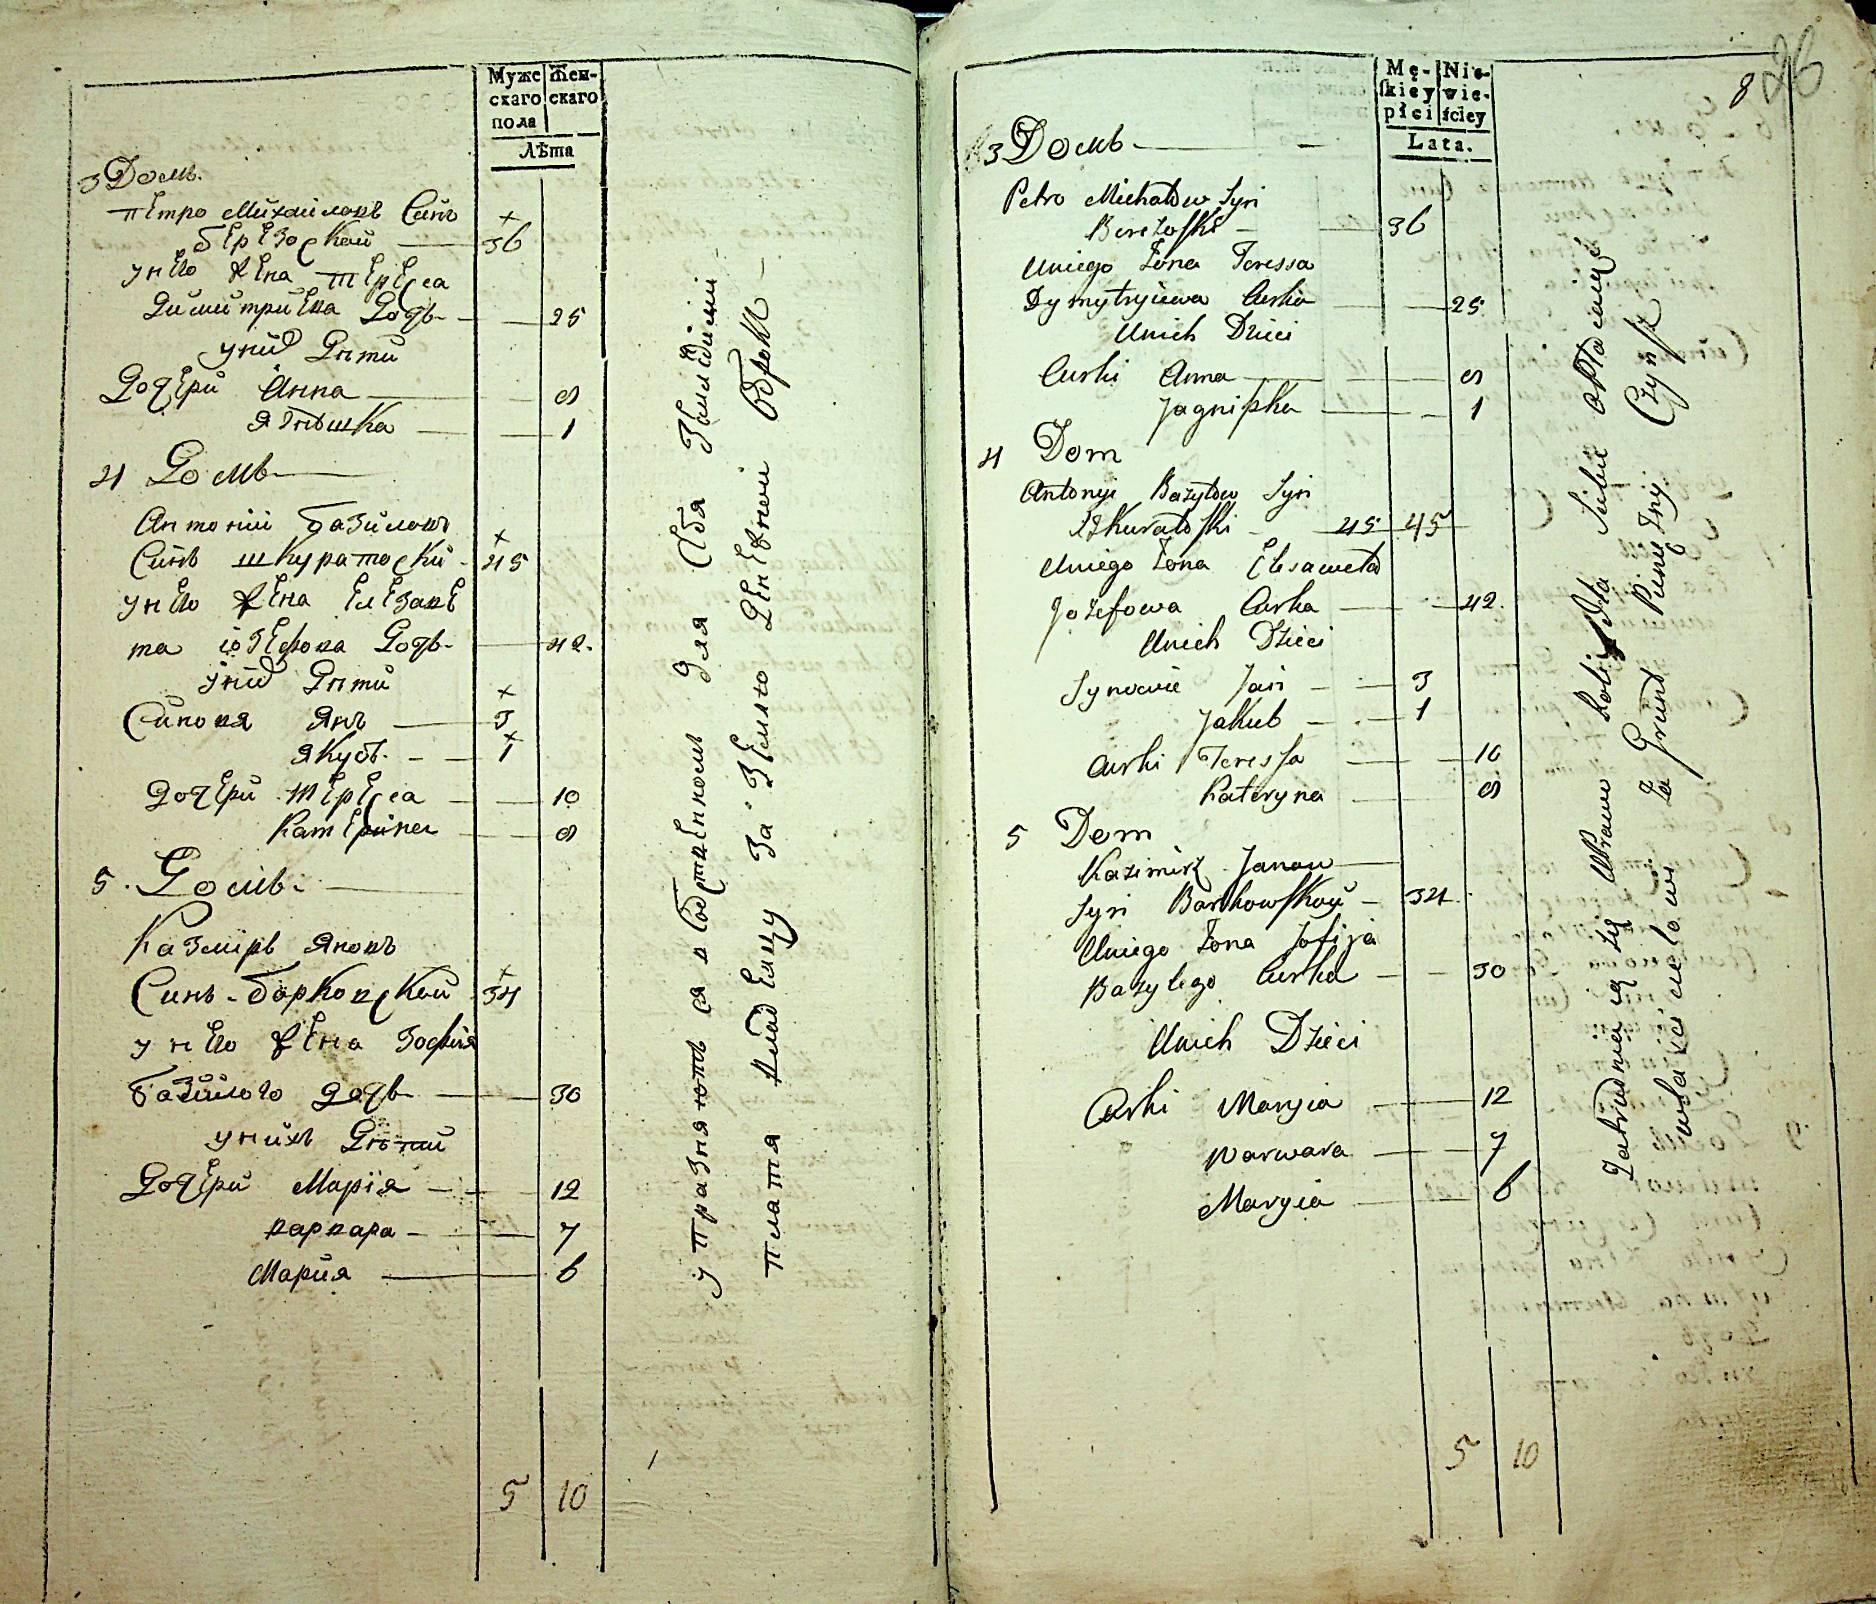 Муже
скаго
пола
Жен-
скаго
Лѣта
3 Домъ.
Петро Михайловъ Синъ
Березоскай 36
у него жена Тереса
Димитриева Дочь 25
у них Дѣти
Дочери Анна 8
Ягнѣшка 1
4 Домъ
Антоній Базиловъ
Синъ Шкуратоский 45
у него жена Елезаве
та іозефова Дочь 42.
у них Дѣти
Синовя Янъ 3
Якубъ 1
Дочери Тереса 10
Катерина 8
5. Домъ.
Казміръ Яновъ
Синъ Барковскай 34
у него жена Зофія
Базилого Дочь 30
у нихъ Дѣти
Дочери Марія 12
Варвара 7
Мария 6
5 10
упразняются в собственномъ для себя Землѣделіи
платя владельцу за Землю Денежной Оброк
8
26
Mę-
skiey
płci
Nie-
wie-
ściey
Lata.
3 Домъ
Petro Michałow Syn
Berezoski 36
Uniego Żona Teressa
Dymytryiewa Curka 25
Unich Dzieci
Curki Anna 8
Jagniszka 1
4 Dom
Antonyi Bazylow Syn
Szkuratoski 45 45
Uniego Żona Elsaweta
Jozefowa Curka 42.
Unich Dzieci
Synowie Jan 3
Jakub 1
Curki Teressa 10
Kateryna 8
5 Dom
Kazimirz Janow
Syn Barkowskoy 34
Uniego Żona Zofija
Bazylego Curka 30
Unich Dzieci
Curki Maryia 12
Warwara 7
Maryia 6
5 10
Zatrudniaią się Uprawą Roli Dla Siebie opłacaiąc
właścicielowi Za Grunt Pieniężny Czynsz